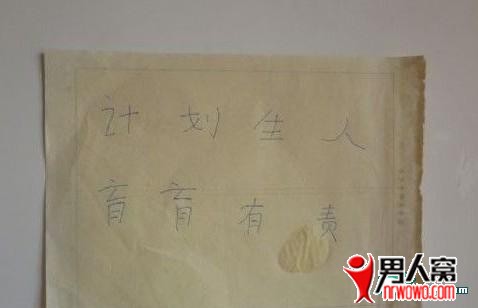 计划生人
育育有责
男人窝
nrwowo.com